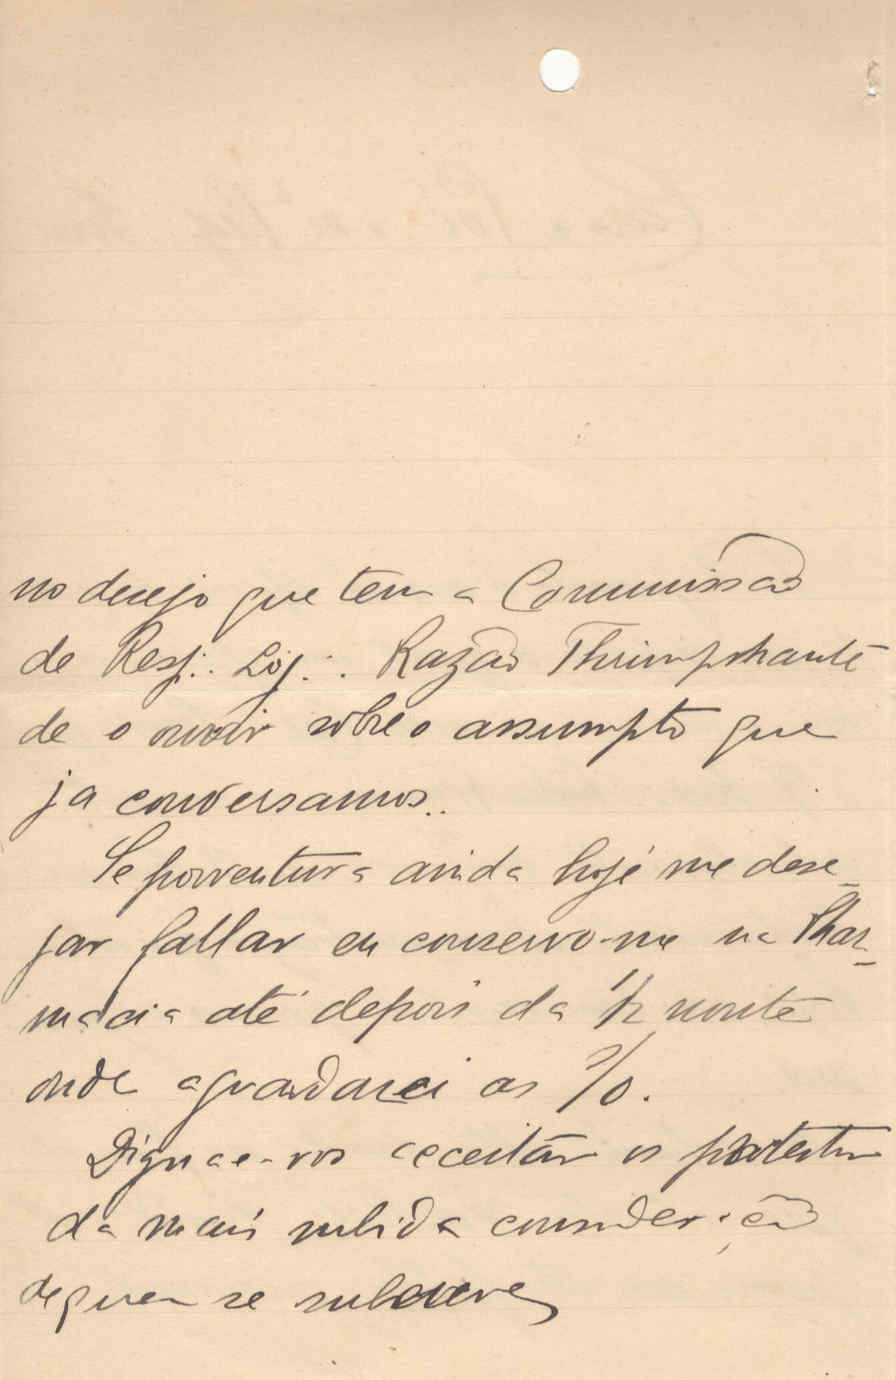 no desejo que tem a Commissão
de Resp∴ Loj∴ Razão Thriumphante
de o ouvir sobre o assumpto que
ja conversamos..
Se porventura ainda hoje me dese-
jar fallar eu conservo-me na Phar-
macia até depois da 1/2 noute
onde aguardarei as
Dignae-vos acceitar os protestos
da mais subida consideração
de quem se subscreve